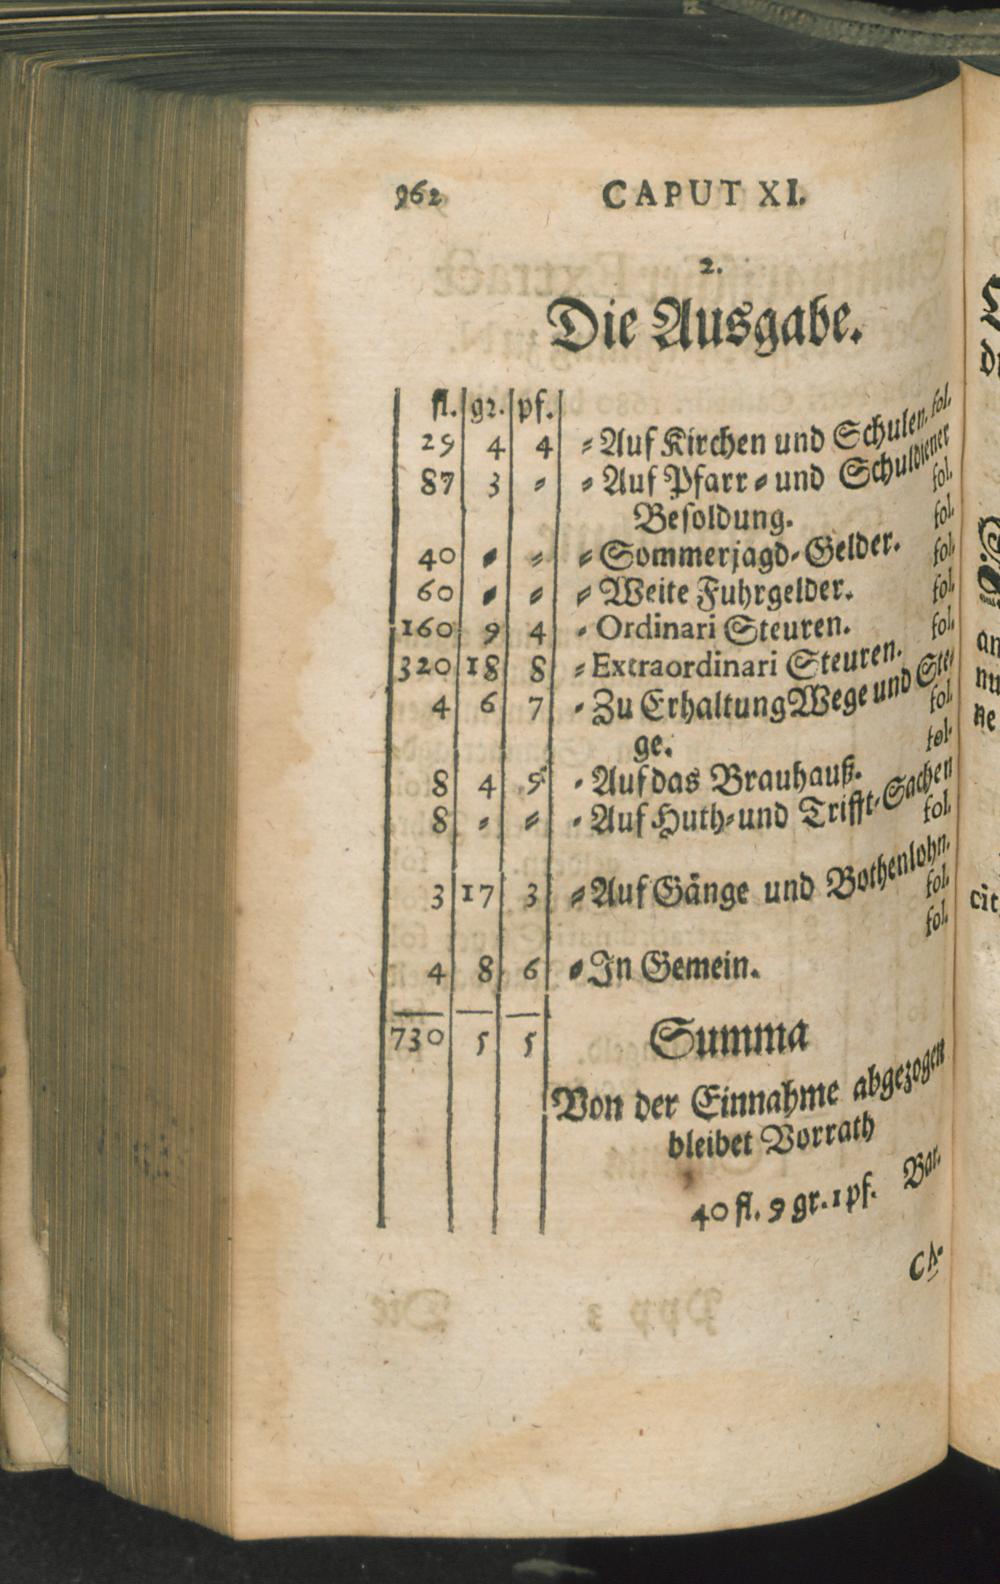 962 CAPUT XI.
2.
Die Ausgabe.
fl. gr. pf.
29 4 4 ⸗ Auf Kirchen und Schulen. fol.
87 3 ⸗ ⸗ Auf Pfarr⸗und Schuldiener
Besoldung. fol.
40 ⸗ ⸗ ⸗ Sommerjagd⸗Gelder. fol.
60 ⸗ ⸗ ⸗ Weite Fuhrgelder. fol.
160 9 4 ⸗ Ordinari Steuren. fol.
320 18 8 ⸗ Extraordinari Steuren. fol.
4 6 7 ⸗ Zu Erhaltung Wege und Ste⸗
ge. fol.
8 4 9 ⸗ Auf das Brauhauß. fol.
8 ⸗ ⸗ ⸗ Auf Huth⸗und Trifft⸗Sachen
fol.
3 17 3 ⸗ Auf Gänge und Bothenlohn.
fol.
4 8 6 ⸗ In Gemein. fol.
730 5 5 Summa
Von der Einnahme abgezogen
bleibet Vorrath
40 fl. 9 gr. 1 pf. Bar.
CA-